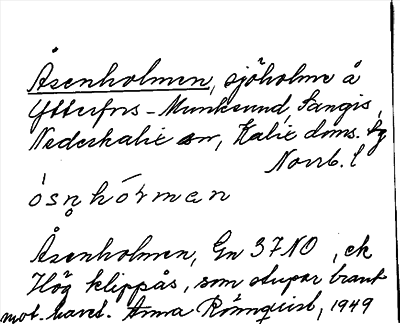 Åsenholmen, sjöholme å
Ytterfors-Munksund, Sangis,
Nederkalix sn, Kalix doms. 
Norrb. l
ósn̥hórman
Åsenholmen, Gn 37 NO, ek
Hög klippås, som stupar brant
mot havet. Anna Rönnquist, 1949